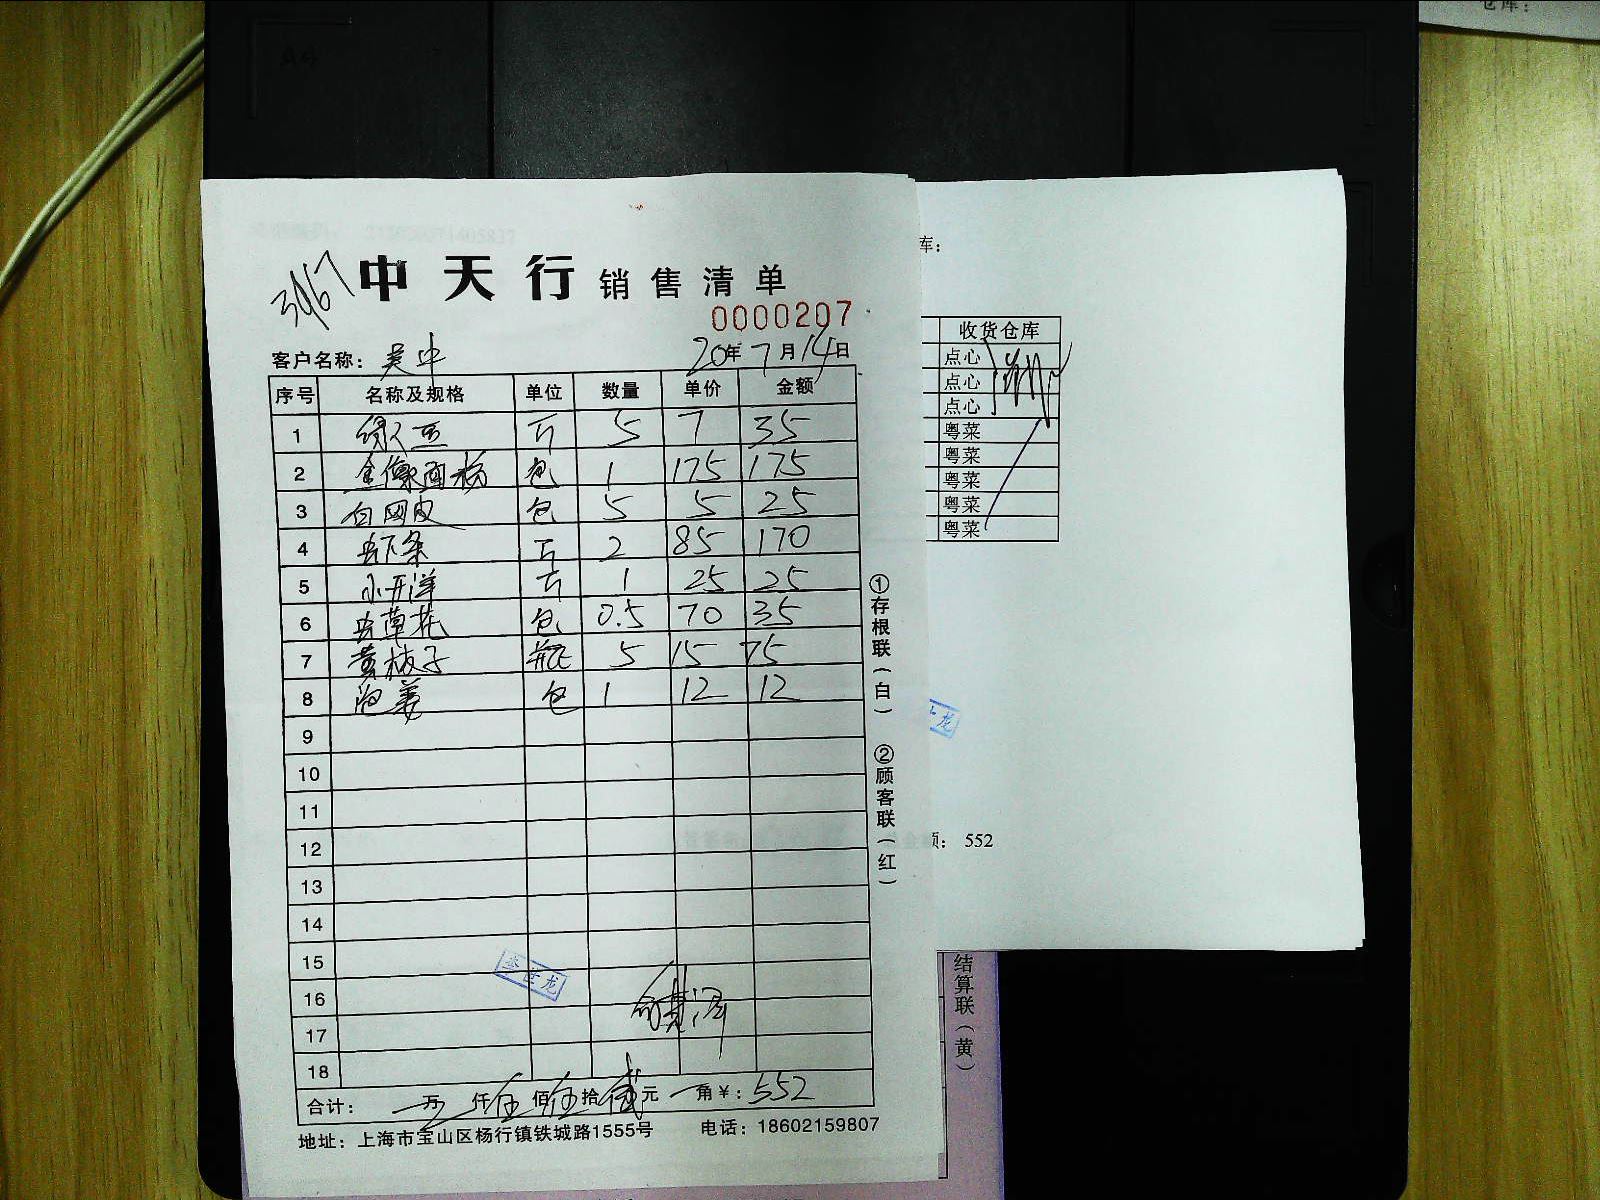 仓库:
3967
中天行 销售清单
0000207
客户名称: 吴中 20年7月14日
序号 名称及规格 单位 数量 单价 金额
1 绿豆 斤 5 7 35
2 金像面粉 包 1 175 175
3 白网皮 包 5 5 25
4 虫下条 斤 2 85 170
5 小开洋 斤 1 25 25
6 虫草花 包 0.5 70 35
7 黄枝子 瓶 5 15 75
8 泡姜 包 1 12 12
9
10
11
12
13
14
15
16
17
18
合计: 万 仟 伍佰 伍拾 贰元 角 ¥: 552
地址: 上海市宝山区杨行镇铁城路1555号 电话: 18602159807
①存根联(白) ②顾客联(红)
库:
收货仓库
点心
点心
点心
粤菜
粤菜
粤菜
粤菜
粤菜
额: 552
结算联(黄)